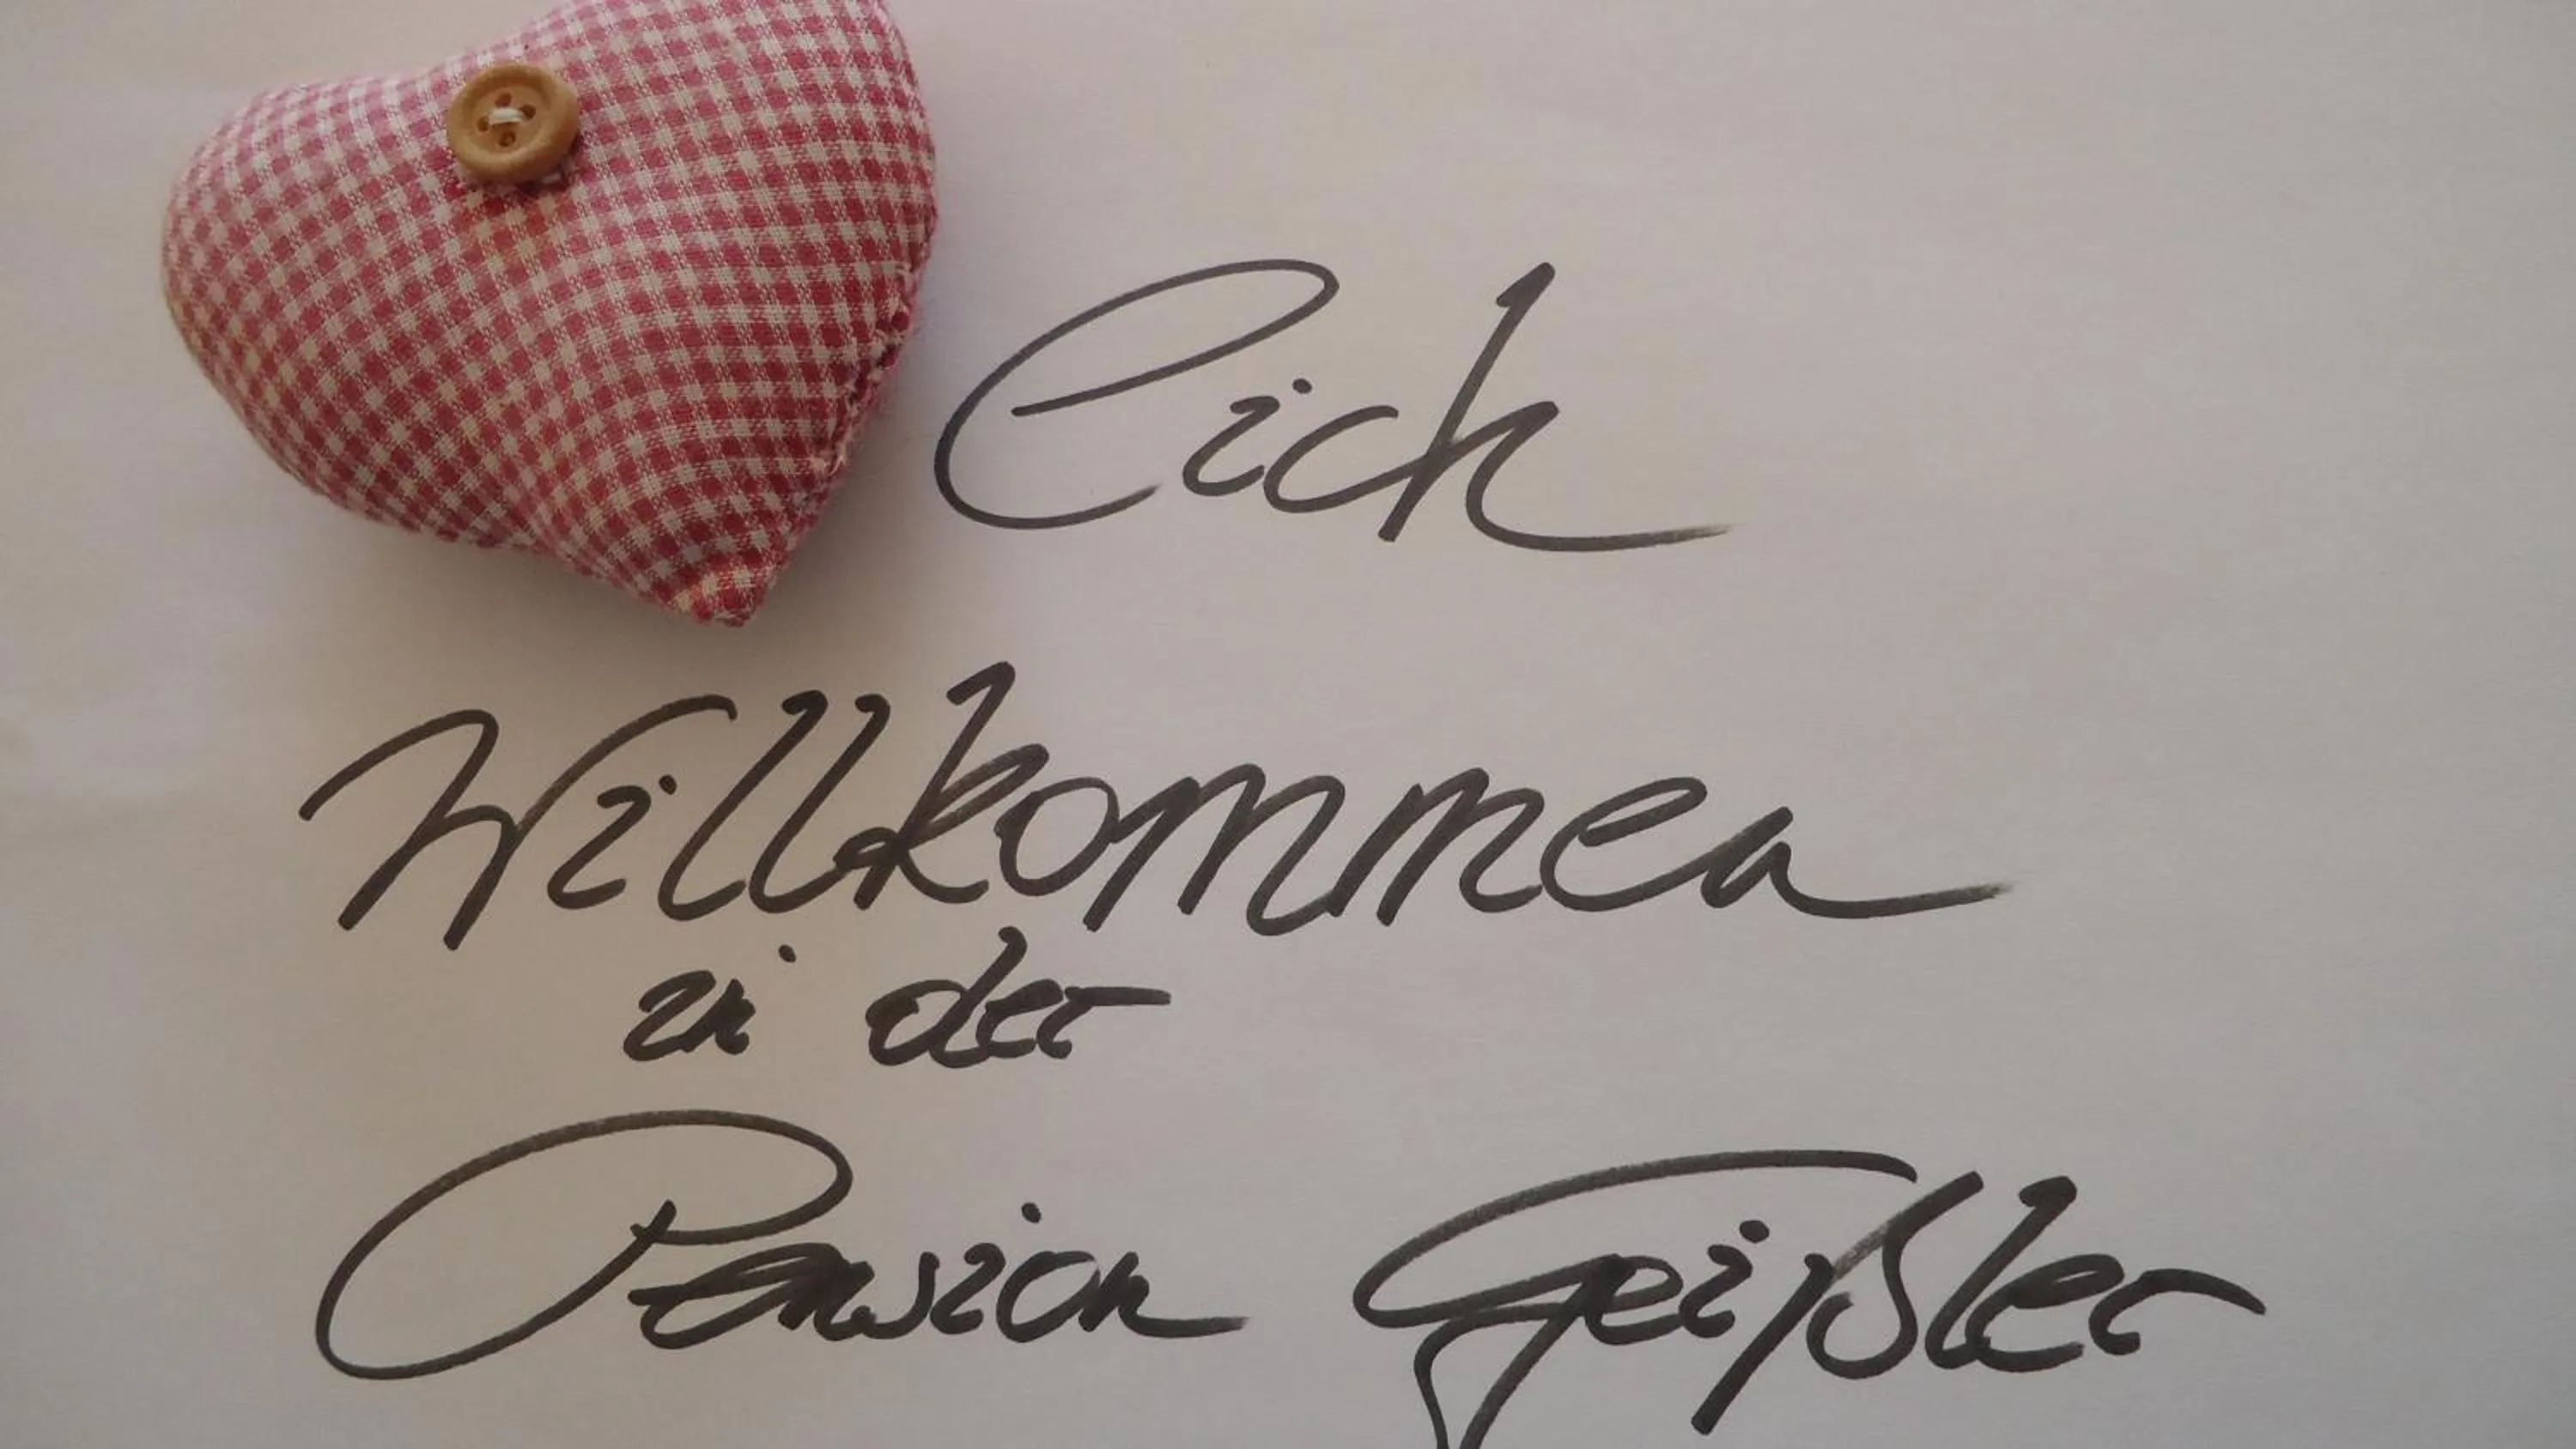 lich
Willkommen
in der
Pension Geißler